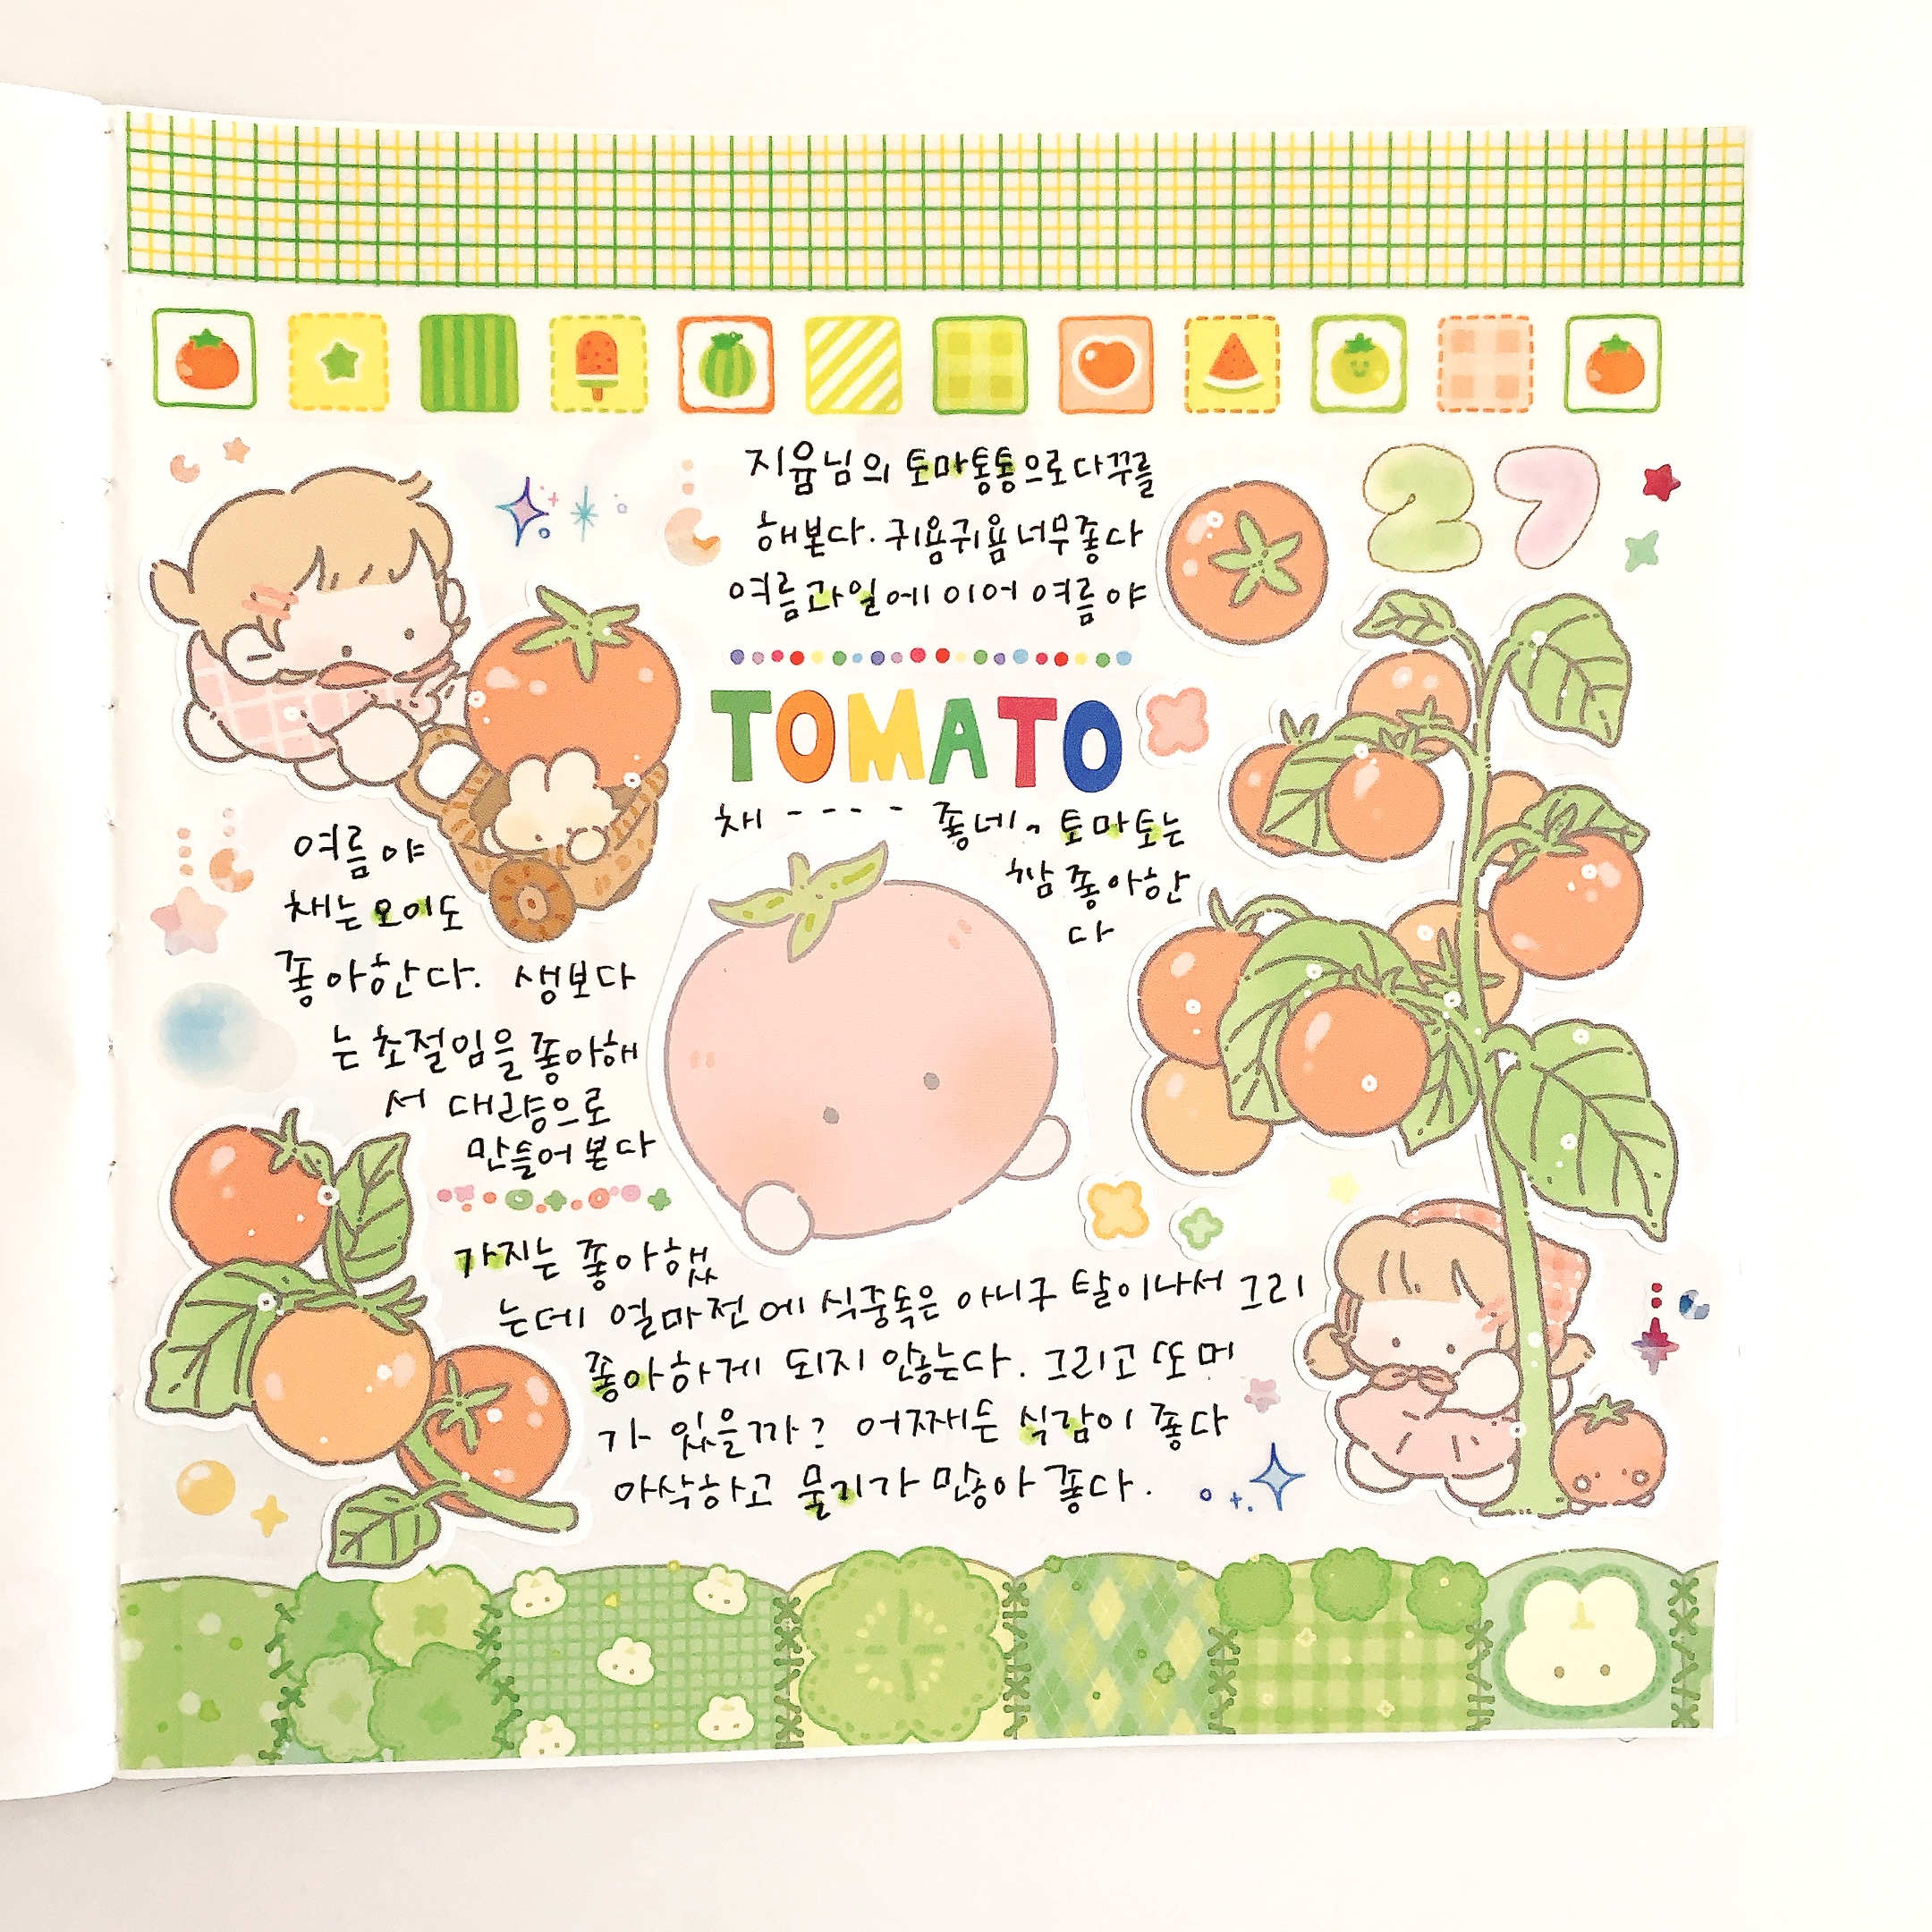 27
지윰님의 토마통통으로다꾸를
해본다. 귀욤귀욤 너무좋다
여름과일에 이어 여름 야
TOMATO
채 - - - - 좋네~ 토마토는
참 좋아한
다
여름 야
채는 오이도
좋아한다. 생보다
는 초절임을 좋아해
서 대량으로
만들어 본다
가지는 좋아했
는데 얼마전에 식중독은 아니구 탈이나서 그리
좋아하게 되지 않는다. 그리고 또 머
가 있을까? 어쨰든 식감이 좋다
아삭하고 물기가 많아 좋다.